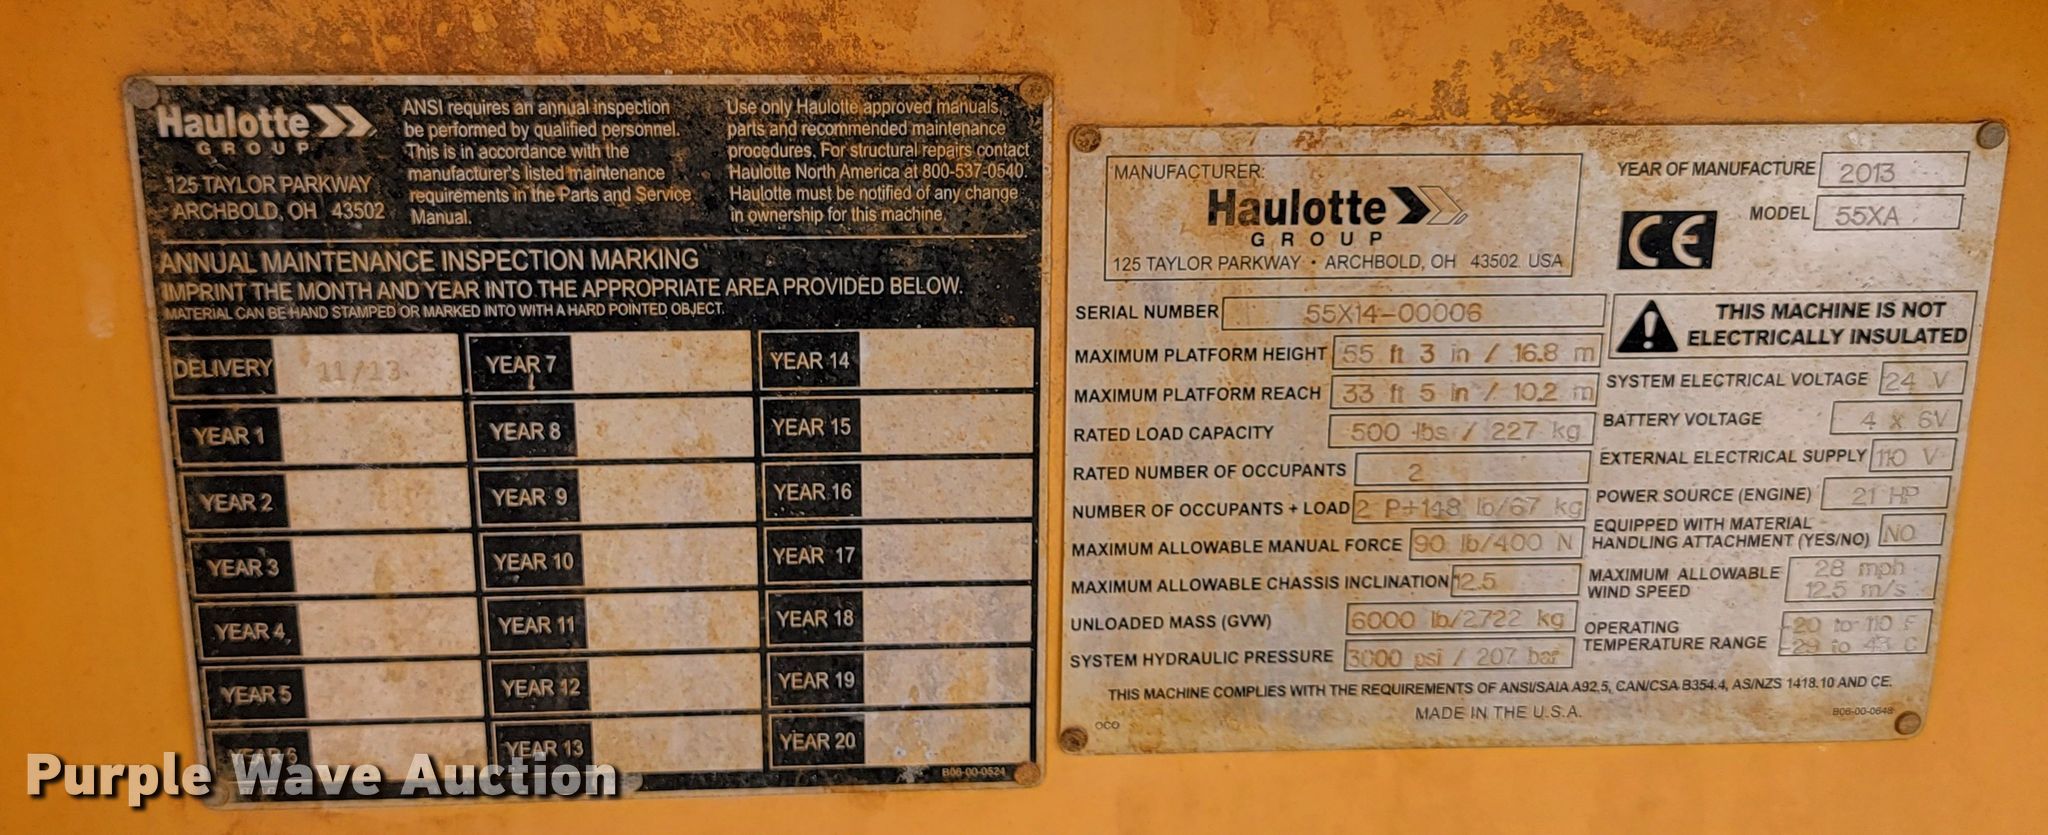 Haulotte
GROUP
125 TAYLOR PARKWAY
ARCHBOLD, OH 43502
ANSI requires an annual inspection
be performed by qualified personnel.
This is in accordance with the
manufacturer's listed maintenance
requirements in the Parts and Service
Manual.
Use only Haulotte approved manuals,
parts and recommended maintenance
procedures. For structural repairs contact
Haulotte North America at 800-537-0540.
Haulotte must be notified of any change
in ownership for this machine.
ANNUAL MAINTENANCE INSPECTION MARKING
IMPRINT THE MONTH AND YEAR INTO THE APPROPRIATE AREA PROVIDED BELOW.
MATERIAL CAN BE HAND STAMPED OR MARKED INTO WITH A HARD POINTED OBJECT.
DELIVERY 11/13
YEAR 1
YEAR 2
YEAR 3
YEAR 4
YEAR 5
YEAR 6
YEAR 7
YEAR 8
YEAR 9
YEAR 10
YEAR 11
YEAR 12
YEAR 13
YEAR 14
YEAR 15
YEAR 16
YEAR 17
YEAR 18
YEAR 19
YEAR 20
B06-00-0524
MANUFACTURER:
Haulotte
GROUP
125 TAYLOR PARKWAY • ARCHBOLD, OH 43502 USA
YEAR OF MANUFACTURE 2013
MODEL 55XA
CE
SERIAL NUMBER 55X14-00006
MAXIMUM PLATFORM HEIGHT 55 ft 3 in / 16.8 m
MAXIMUM PLATFORM REACH 33 ft 5 in / 10.2 m
RATED LOAD CAPACITY 500 lbs / 227 kg
RATED NUMBER OF OCCUPANTS 2
NUMBER OF OCCUPANTS + LOAD 2 P+148 lb/67 kg
MAXIMUM ALLOWABLE MANUAL FORCE 90 lb/400 N
MAXIMUM ALLOWABLE CHASSIS INCLINATION 12.5
UNLOADED MASS (GVW) 6000 lb/2722 kg
SYSTEM HYDRAULIC PRESSURE 3000 psi / 207 bar
THIS MACHINE IS NOT
ELECTRICALLY INSULATED
SYSTEM ELECTRICAL VOLTAGE 24 V
BATTERY VOLTAGE 4 x 6V
EXTERNAL ELECTRICAL SUPPLY 110 V
POWER SOURCE (ENGINE) 21 HP
EQUIPPED WITH MATERIAL
HANDLING ATTACHMENT (YES/NO) NO
MAXIMUM ALLOWABLE 28 mph
WIND SPEED 12.5 m/s
OPERATING -20 to 110 F
TEMPERATURE RANGE -29 to 43 C
THIS MACHINE COMPLIES WITH THE REQUIREMENTS OF ANSI/SAIA A92.5, CAN/CSA B354.4, AS/NZS 1418.10 AND CE.
MADE IN THE U.S.A.
OCO
B06-00-0648
Purple Wave Auction